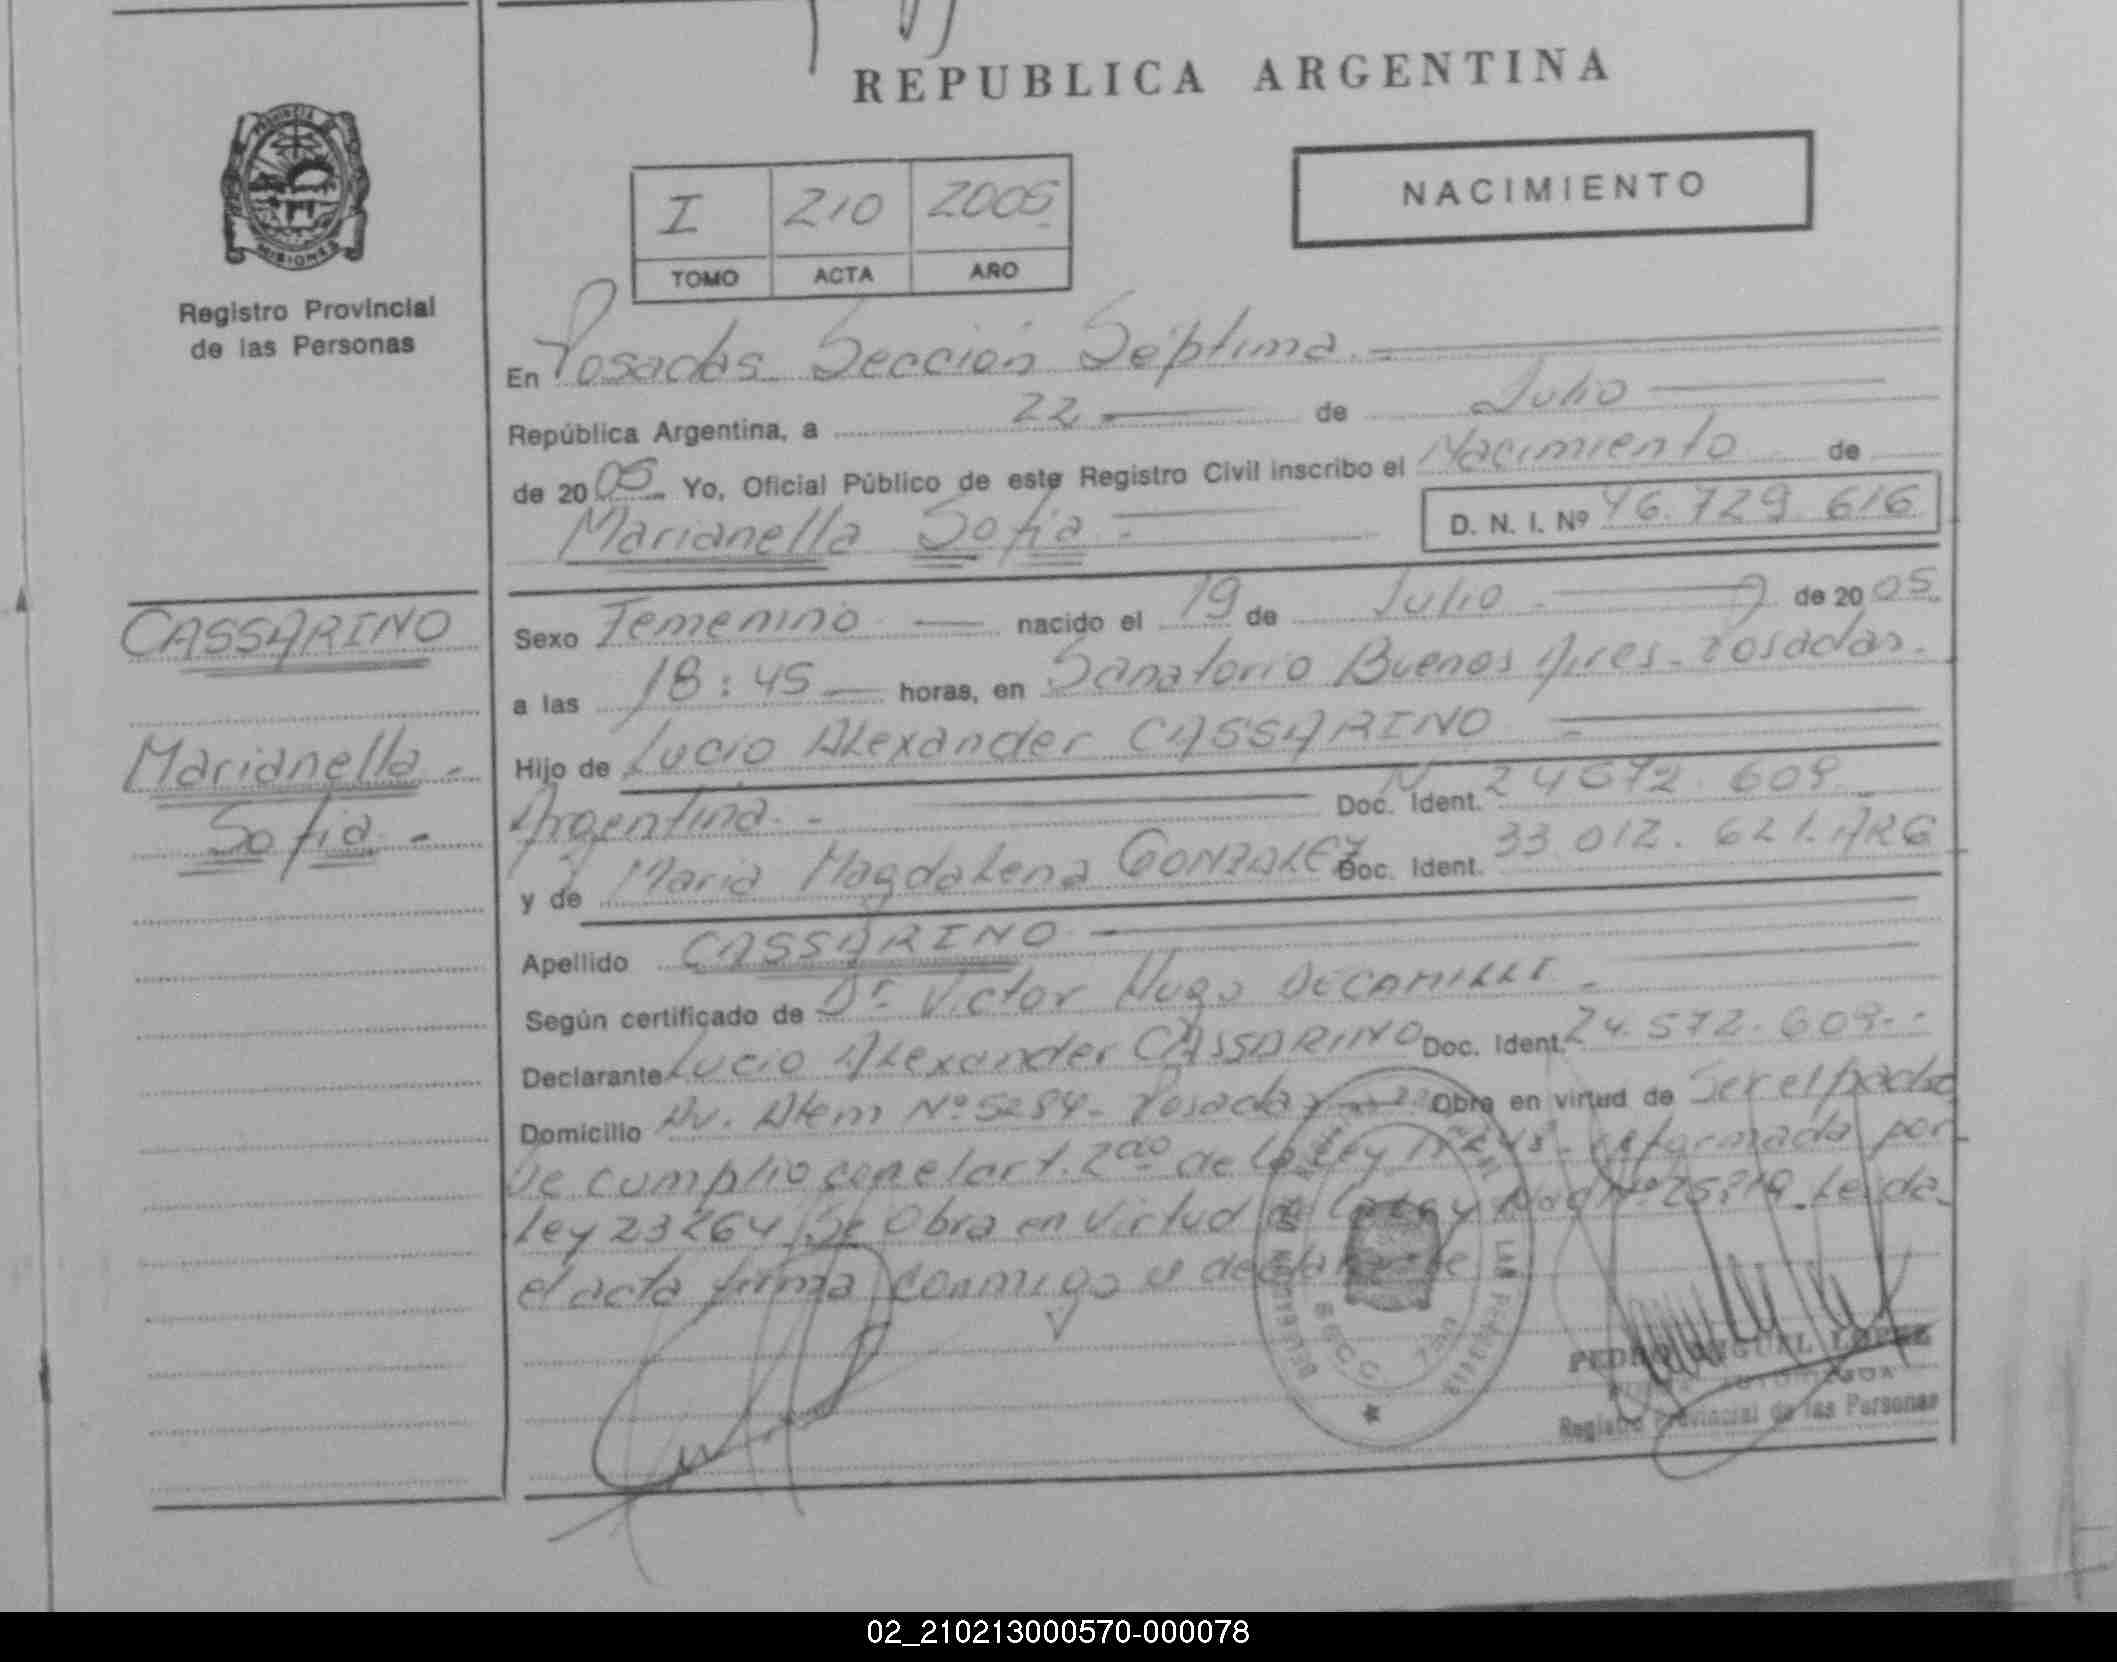 REPUBLICA ARGENTINA
NACIMIENTO
I 210 2005
TOMO ACTA AÑO
PROVINCIA DE
MISIONES
Registro Provincial
de las Personas
En Posadas Sección Séptima.
República Argentina, a 22 de Julio
de 2005 Yo, Oficial Público de este Registro Civil inscribo el Nacimiento de
Marianella Sofia D. N. I. Nº 46.729.616
CASSARINO
Marianella -
Sofia -
Sexo Femenino nacido el 19 de Julio de 2005.
a las 18:45 horas, en Sanatorio Buenos Aires - Posadas.
Hijo de Lucio Alexander CASSARINO
Argentina. - Doc. Ident. 609
y de Maria Magdalena GONZALEZ Doc. Ident. 33.012.621.ARG
Apellido CASSARINO
Según certificado de Dr. Victor Hugo DECAMILLI -
Declarante Lucio Alexander CASSARINO Doc. Ident. 24.572.609.-
Domicilio Av. Alem Nº 5284 - Posadas Obra en virtud de Ser el padre
Se cumplio con el art. 2do de la Ley reformada por
Ley 23264. Se Obra en virtud de la Ley Leida
el acta firma conmigo el declarante
SECC. 7ma
PEDRO MIGUEL LOPEZ
Registro Provincial de las Personas
02_210213000570-000078